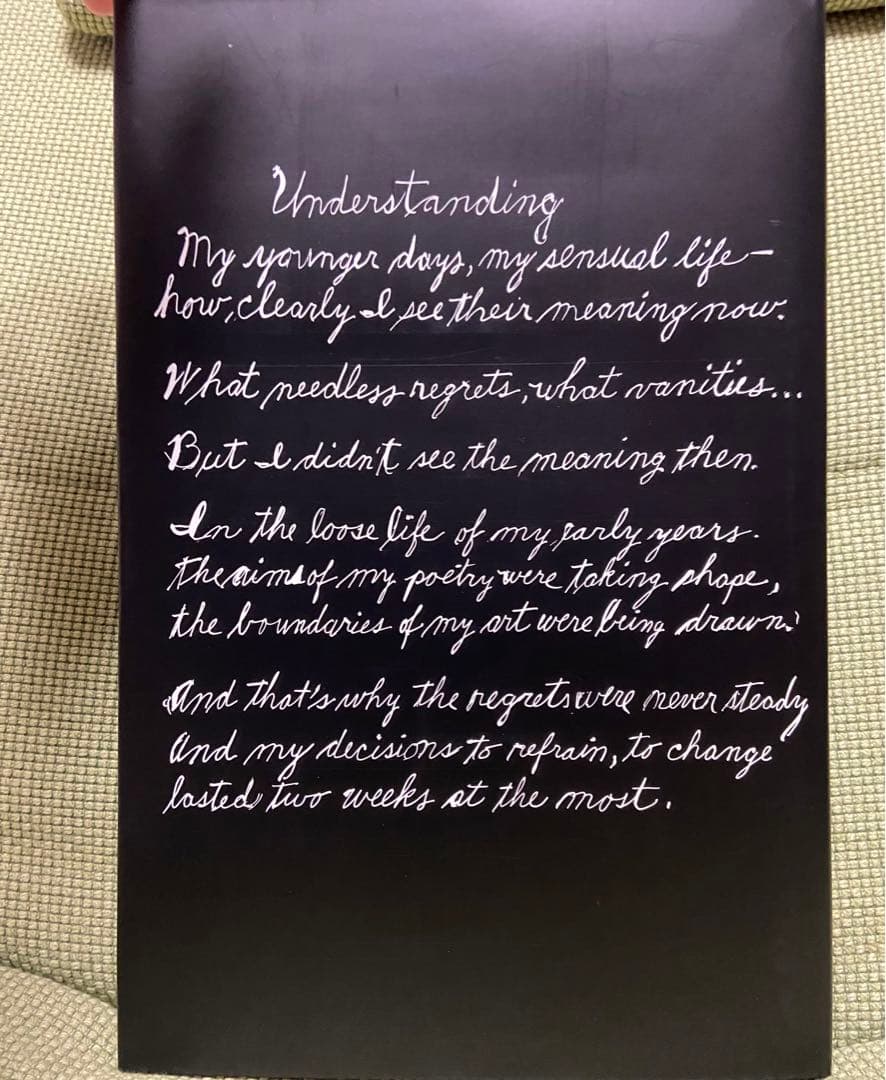 Understanding
My younger days, my sensual life—
how clearly I see their meaning now.
What needless regrets, what vanities...
But I didn't see the meaning then.
In the loose life of my early years.
the aims of my poetry were taking shape,
the boundaries of my art were being drawn.
And that's why the regrets were never steady
And my decisions to refrain, to change
lasted two weeks at the most.